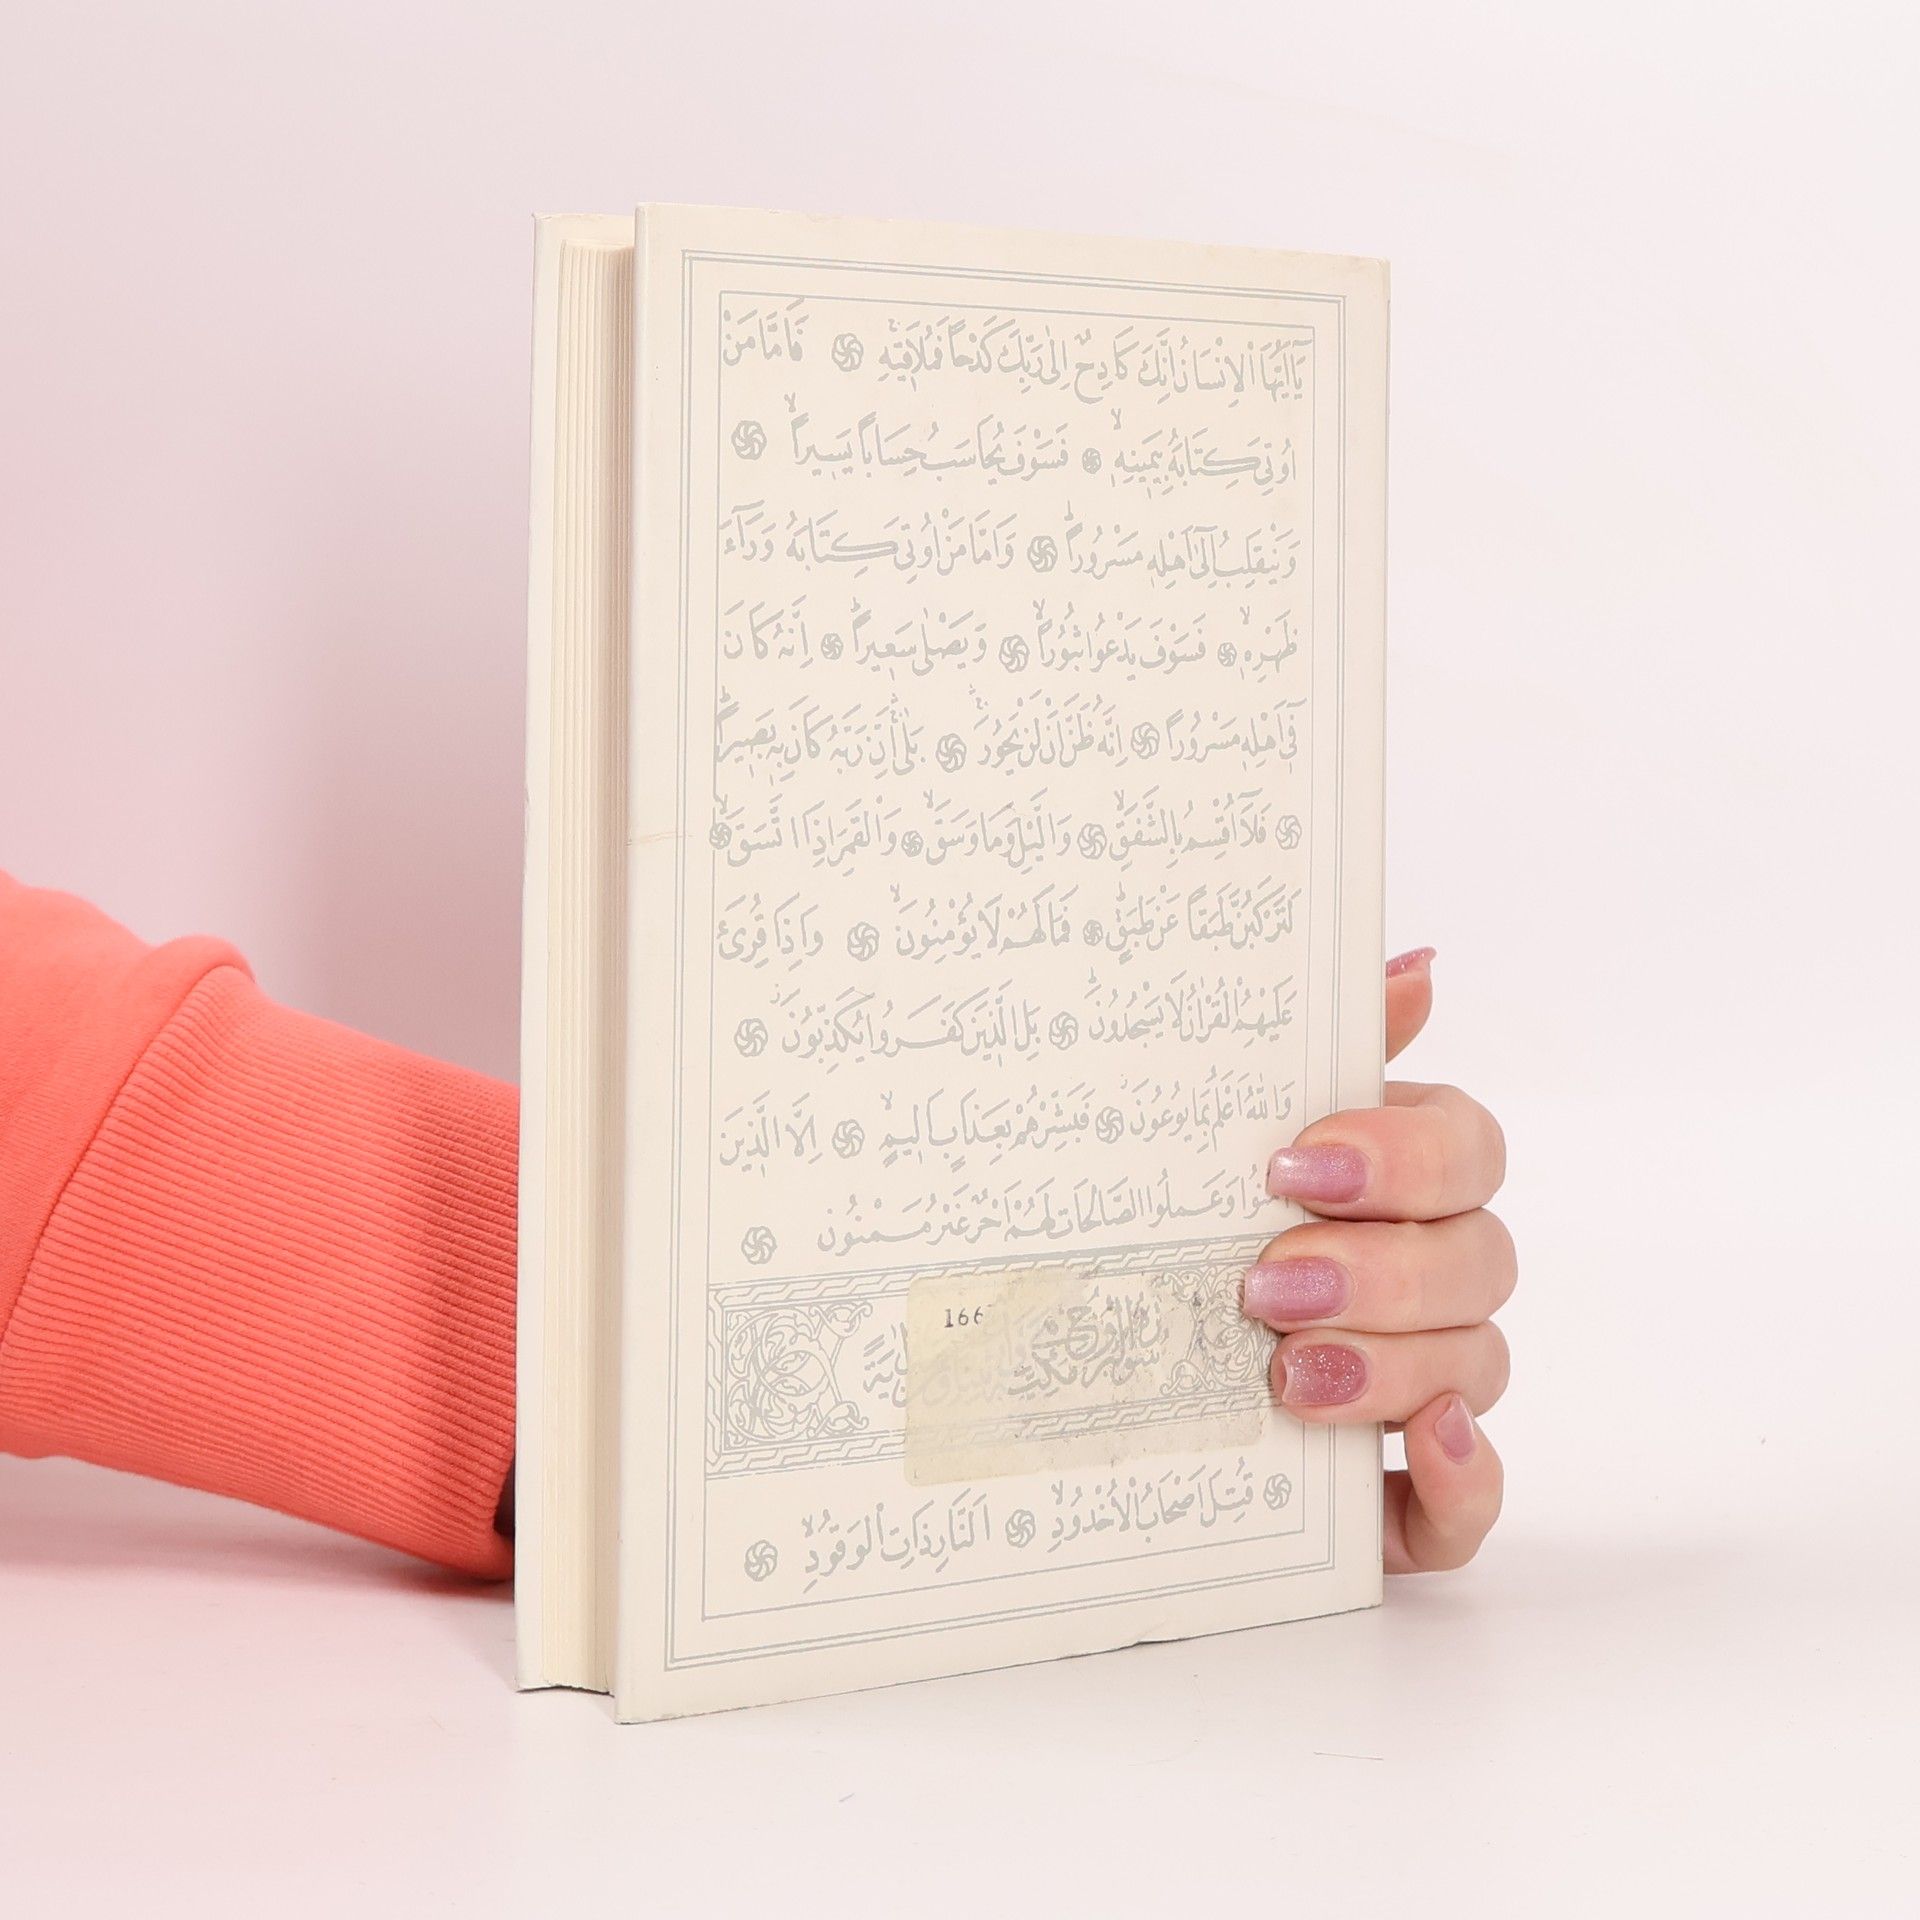 يَٓا اَيُّهَا الْاِنْسَانُ اِنَّكَ كَادِحٌ اِلٰى رَبِّكَ كَدْحًا فَمُلَاق۪يهِۚ فَاَمَّا مَنْ
اُو۫تِيَ كِتَابَهُ بِيَم۪ينِه۪ۙ فَسَوْفَ يُحَاسَبُ حِسَابًا يَس۪يرًاۙ
وَيَنْقَلِبُ اِلٰٓى اَهْلِه۪ مَسْرُورًاۜ وَاَمَّا مَنْ اُو۫تِيَ كِتَابَهُ وَرَٓاءَ
ظَهْرِه۪ۙ فَسَوْفَ يَدْعُوا ثُبُورًاۙ وَيَصْلٰى سَع۪يرًاۜ اِنَّهُ كَانَ
ف۪ٓي اَهْلِه۪ مَسْرُورًا اِنَّهُ ظَنَّ اَنْ لَنْ يَحُورَۚ بَلٰىۚ اِنَّ رَبَّهُ كَانَ بِه۪ بَص۪يرًاۜ
فَلَٓا اُقْسِمُ بِالشَّفَقِۙ وَالَّيْلِ وَمَا وَسَقَۙ وَالْقَمَرِ اِذَا اتَّسَقَۙ
لَتَرْكَبُنَّ طَبَقًا عَنْ طَبَقٍۜ فَمَا لَهُمْ لَا يُؤْمِنُونَۙ وَاِذَا قُرِئَ
عَلَيْهِمُ الْقُرْاٰنُ لَا يَسْجُدُونَۜ بَلِ الَّذ۪ينَ كَفَرُوا يُكَذِّبُونَۘ
وَاللّٰهُ اَعْلَمُ بِمَا يُوعُونَۘ فَبَشِّرْهُمْ بِعَذَابٍ اَل۪يمٍۙ اِلَّا الَّذ۪ينَ
اٰمَنُوا وَعَمِلُوا الصَّالِحَاتِ لَهُمْ اَجْرٌ غَيْرُ مَمْنُونٍ
166
قُتِلَ اَصْحَابُ الْاُخْدُودِۙ اَلنَّارِ ذَاتِ الْوَقُودِۙ